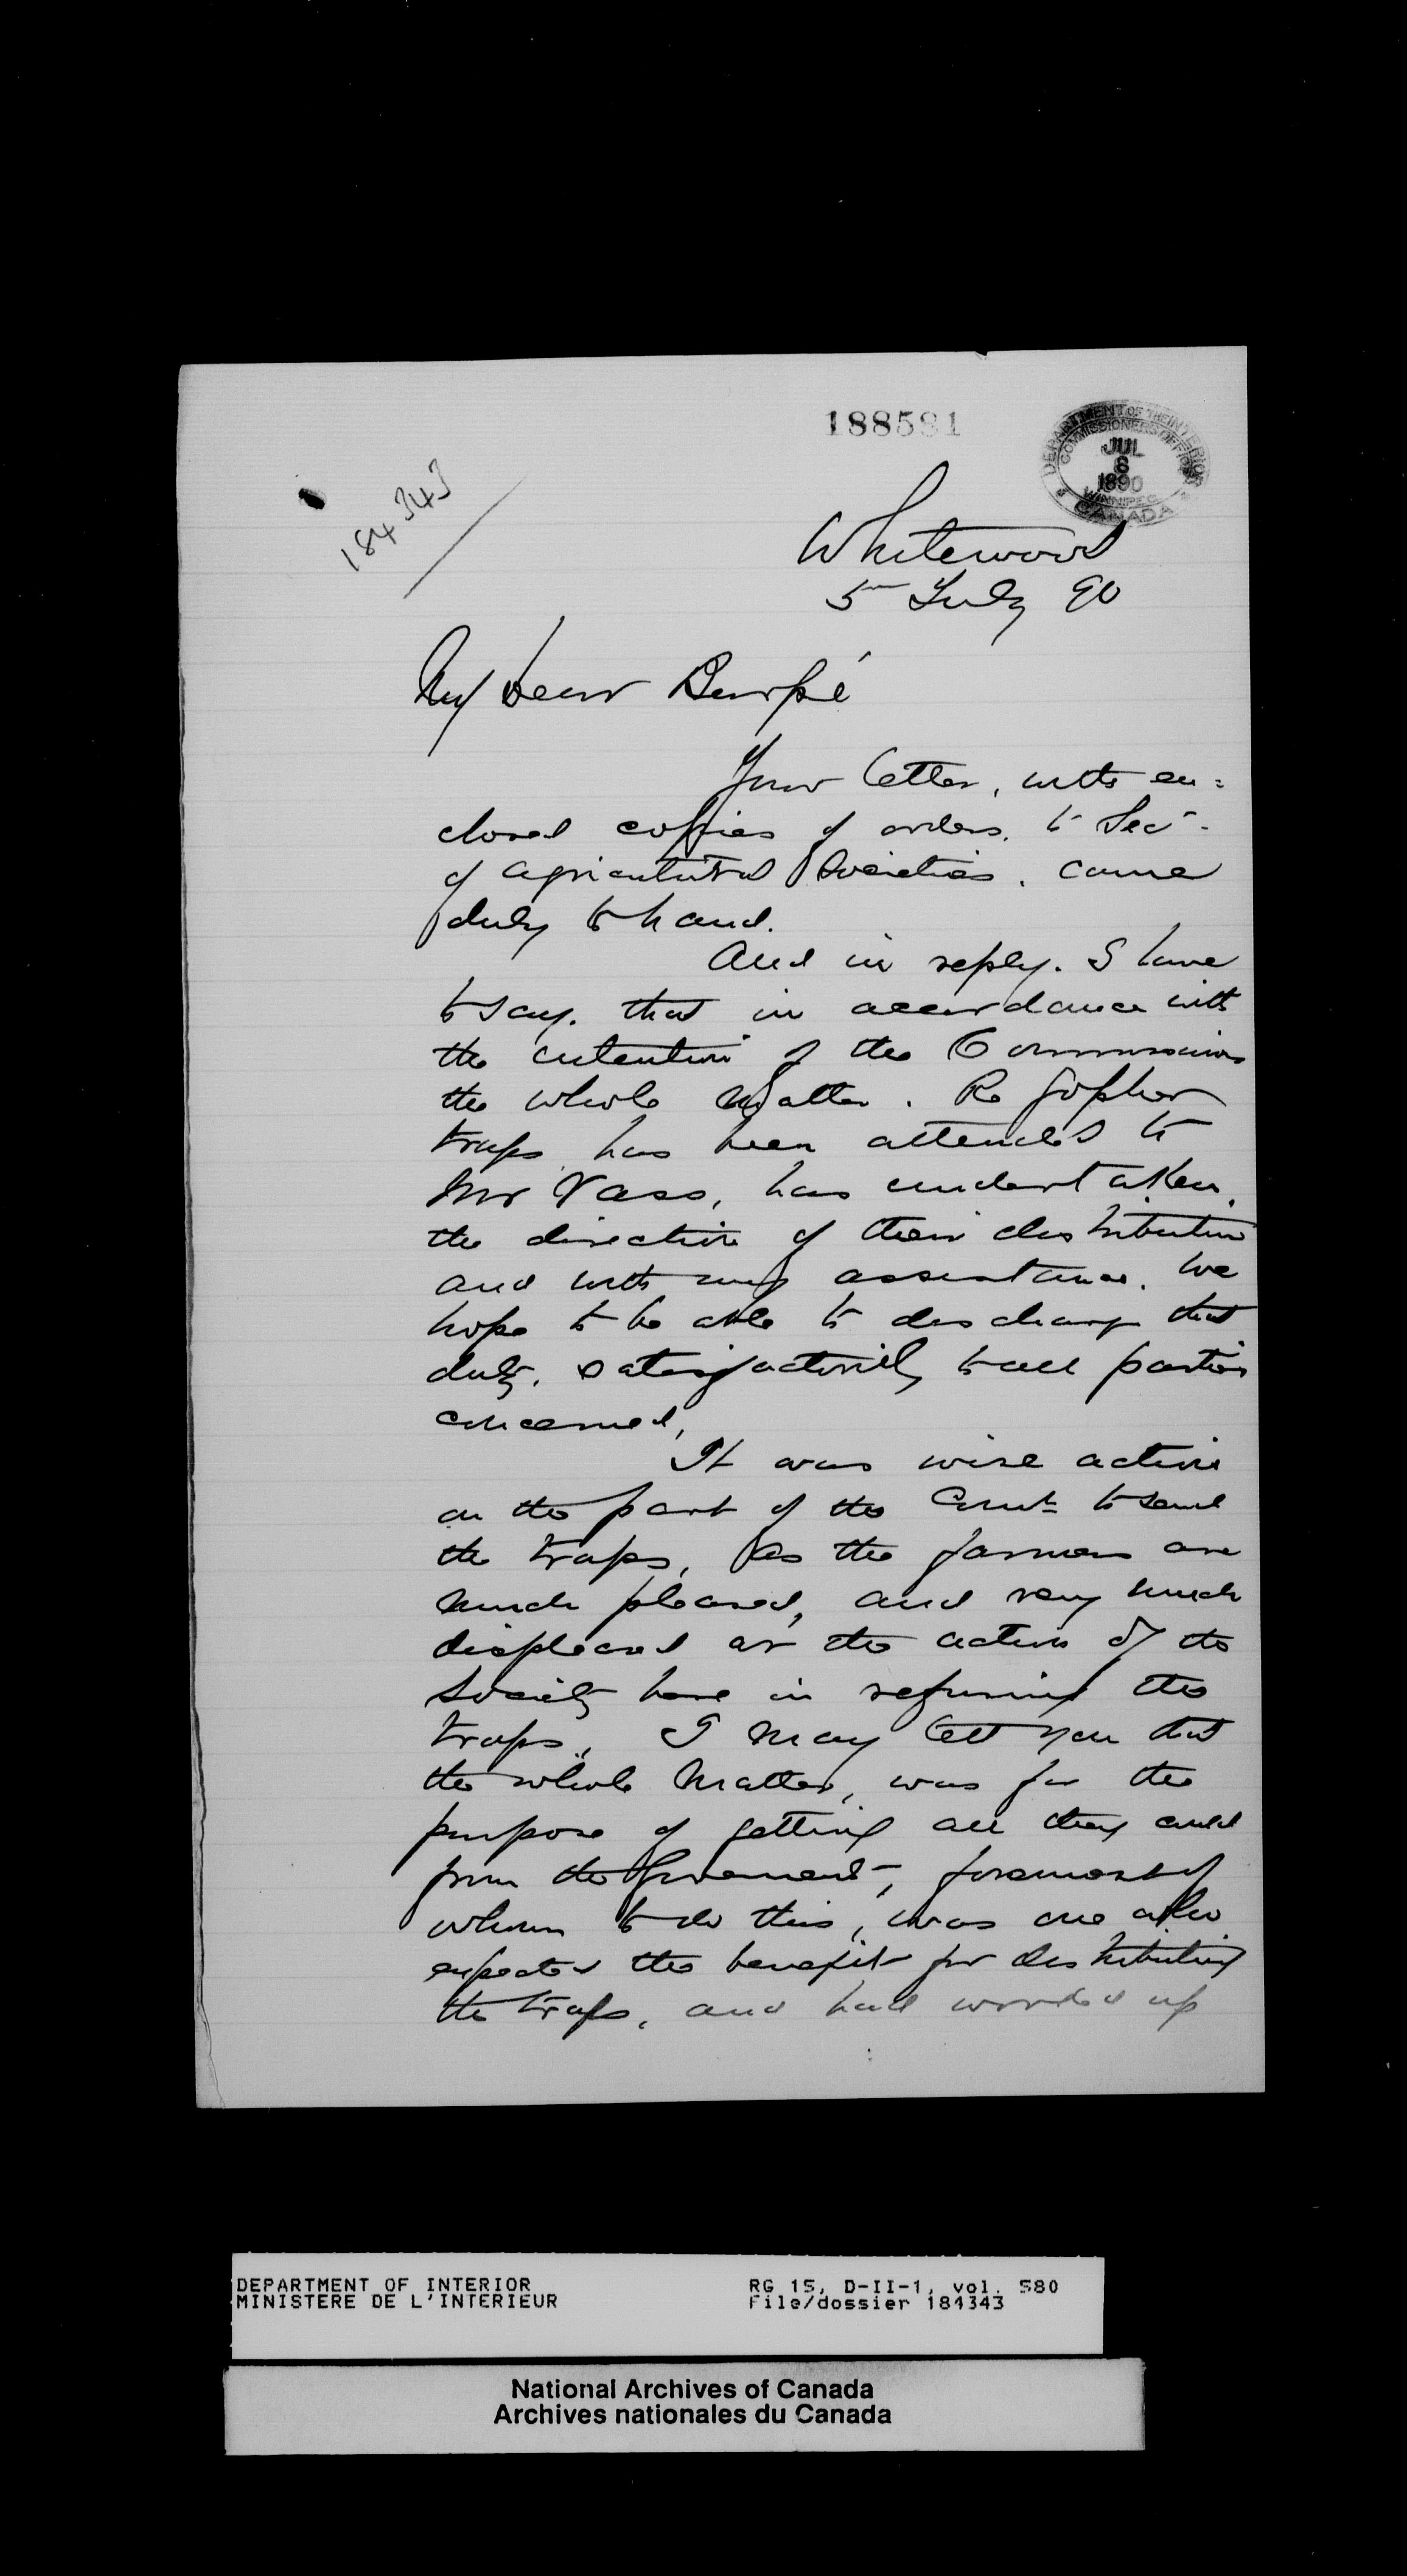 188581
DEPARTMENT OF THE INTERIOR
COMMISSIONERS OFFICE
JUL
8
1890
WINNIPEG
CANADA
184343
Whitewood
5 July 90
My Dear Burpé
Your letter, with en=
closed copies of orders, to Sec-
of Agricultural Societies, came
duly to hand.
And in reply. I have
to say. that in accordance with
the intention of the Commissioner
the whole Matter. Re Gopher
traps has been attended to
Mr Vass, has undertaken,
the direction of their distribution
and with my assistance. We
hope to be able to discharge that
duty. satisfactorily to all parties
concerned,
It was wise action
on the part of the to send
the traps, As the farmers are
much pleased, and very much
displeased at the action of the
Society here in refusing the
traps, I may tell you that
the whole Matter, was for the
purpose of getting all they could
from the Government, foremost of
whom to do this, was one who
expected the benefit for distributing
the traps, and had worked up
DEPARTMENT OF INTERIOR
MINISTERE DE L'INTERIEUR
RG 15, D-II-1, vol. 580
File/dossier 184343
National Archives of Canada
Archives nationales du Canada